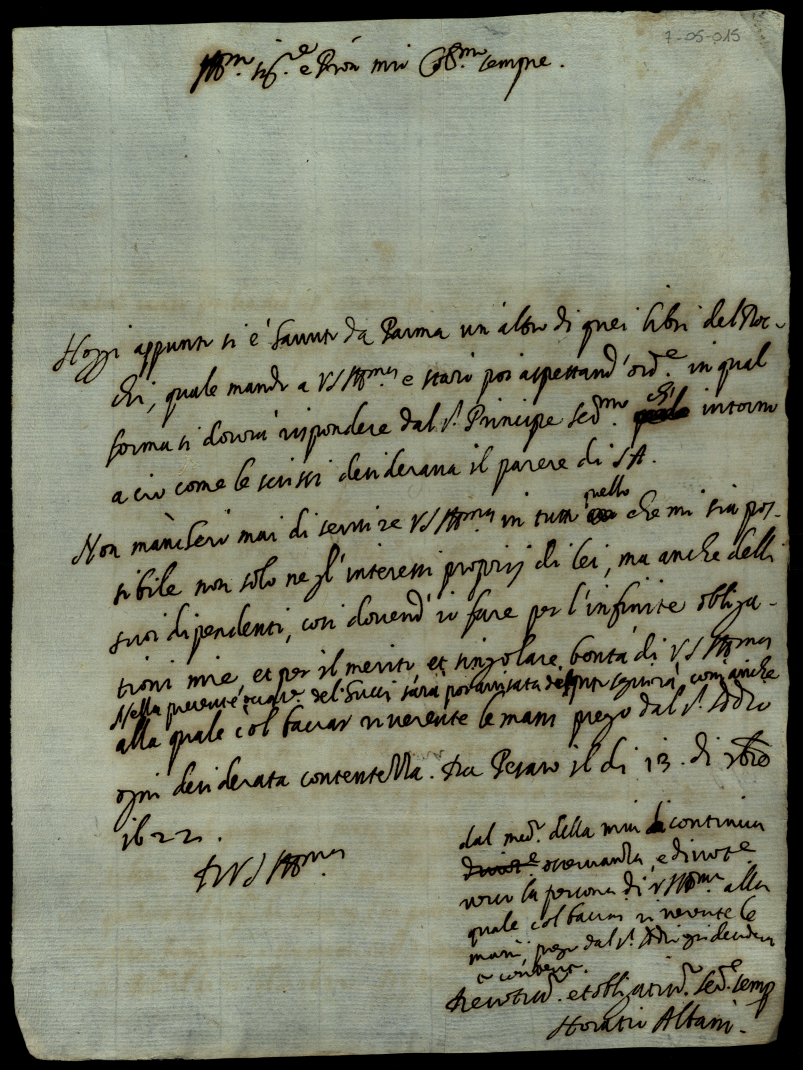 7-05-015
Ill.mo Sig.re e Pron mio Oss.mo sempre.
Hoggi appunto si è havuto da Parma un altro di quei libri del Roc-
chi, quale mando a VS Ill.ma e starò poi aspettand' ord.e in qual
forma si dovrà rispondere dal S.r Principe Ser.mo chi intorno
a ciò come le scrissi desiderava il parere di SA.
Non mancherò mai di servire VS Ill.ma in tutto quello che mi sia pos-
sibile non solo negl' interessi proprij di lei, ma anche delli
suoi dipendenti, così dovend' io fare per l'infinite obliga-
tioni mie, et per il merito et singolare bontà di VS Ill.ma
Nella presente del Succi sarà poi avvisata del seguirà, com' anche
alla quale col baciar riverente le mani prego dal S.r Iddio
ogni desiderata contentezza. Da Pesaro il di 13 di 9bre
1622.
Di VS Ill.ma
dal med.o della mia continua
divot.e osservanza, e divot.e
verso la persona di VS Ill.ma alla
quale col baciar riverente le
mani, prego dal S.r Iddio ogni desidera
Devotiss.o et obligatiss.o Ser.re semp
Horatio Albani.